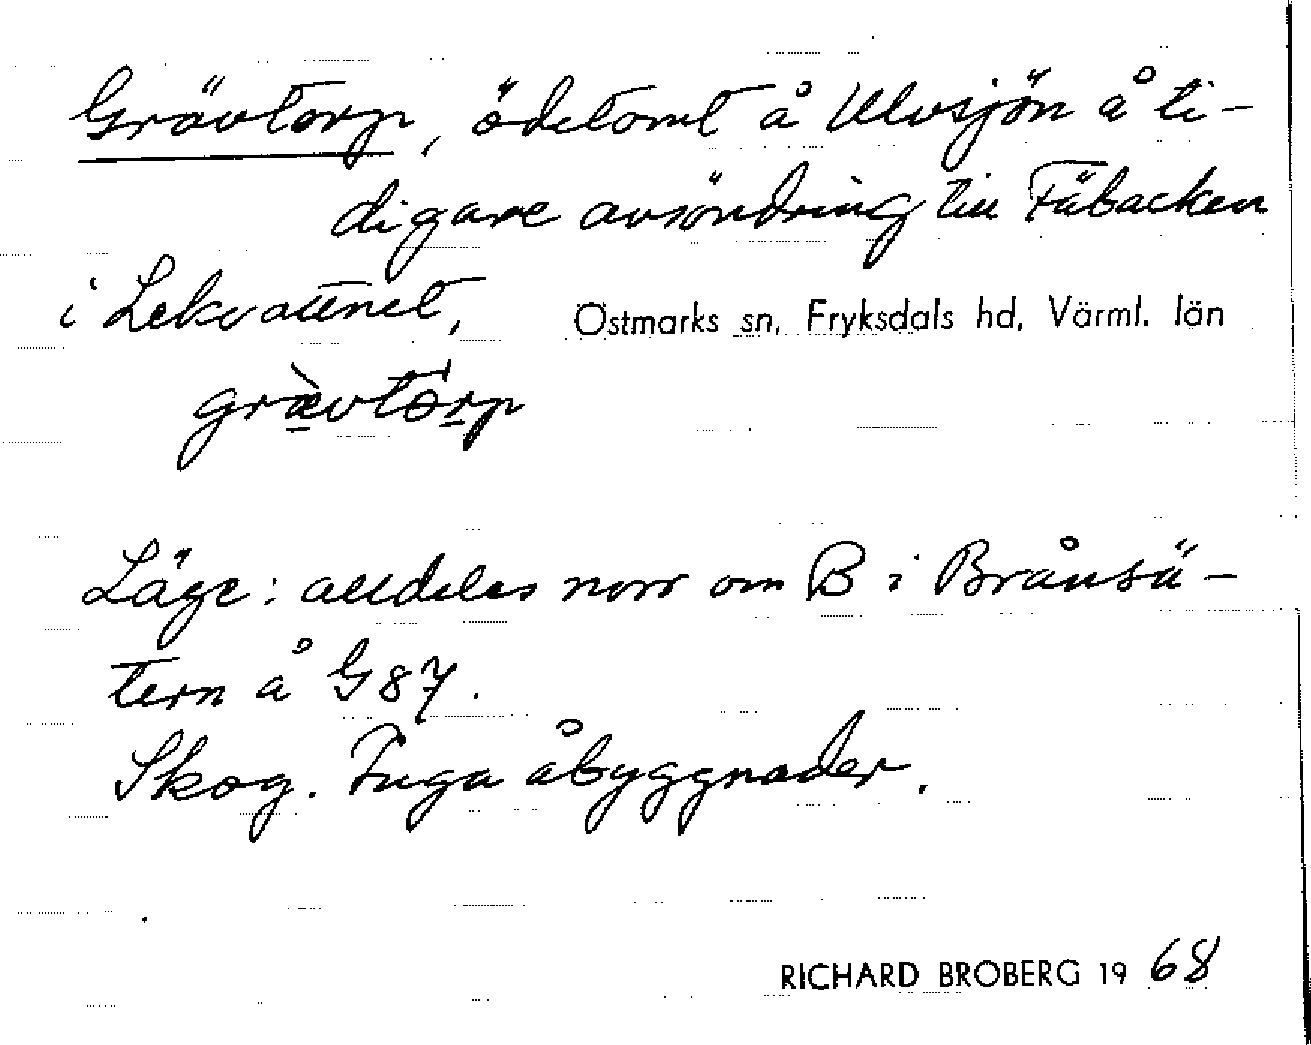 Grävtorp, ödetomt å Ulvsjön å ti-
digare avsöndring till Fäbacken
i Lekvattnet, Östmarks sn, Fryksdals hd, Värml. län
græ̀vtȯrp
Läge: alldeles norr om B i Brånsä-
tern å G87.
Skog. Inga åbyggnader.
RICHARD BROBERG 1968